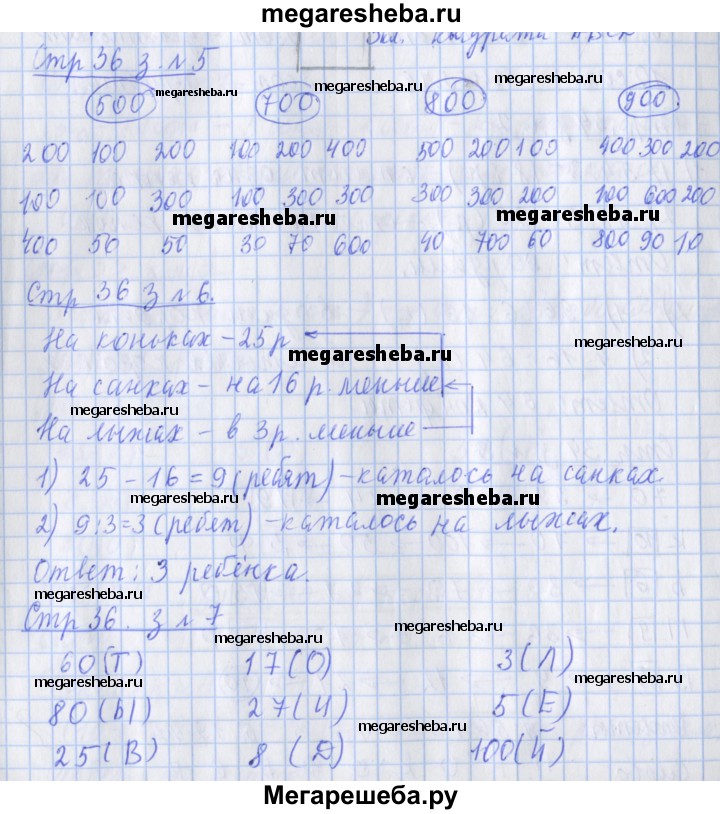 megaresheba.ru
Стр 36 з. № 5
megaresheba.ru megaresheba.ru megaresheba.ru
500 700 800 900
megaresheba.ru
200 100 200 100 200 400 500 200 100 400 300 200
100 100 300 100 300 300 300 300 200 100 600 200
megaresheba.ru megaresheba.ru
400 50 50 30 70 600 40 700 60 800 90 10
Стр 36 з № 6.
На коньках - 25 р
megaresheba.ru
На санках - на 16 р. меньше
megaresheba.ru
На лыжах - в 3 р. меньше
1) 25 - 16 = 9 (ребят) - каталось на санках.
megaresheba.ru megaresheba.ru
2) 9 : 3 = 3 (ребят) - каталось на лыжах.
Ответ: 3 ребёнка.
megaresheba.ru
Стр 36. з № 7
megaresheba.ru megaresheba.ru
60 (Т) 17 (О) 3 (Л)
megaresheba.ru megaresheba.ru
80 (Ы) 27 (И) 5 (Е)
megaresheba.ru
25 (В) 8 (Д) 100 (Й)
Мегарешеба.ру